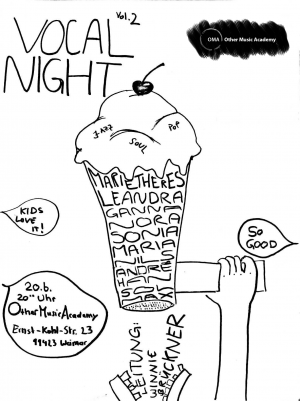 VOCAL
Vol. 2
NIGHT
OMA Other Music Academy
JAZZ
SOUL
POP
MARIETHERES
LEANDRA
GANNA
NORA
SONIA
MARIA
KIDS
LOVE
IT!
SO
GOOD
20.6.
20°° Uhr
Other Music Academy
Ernst-Kohl-Str. 23
99423 Weimar
LEITUNG:
WINNIE
BRÜCKNER